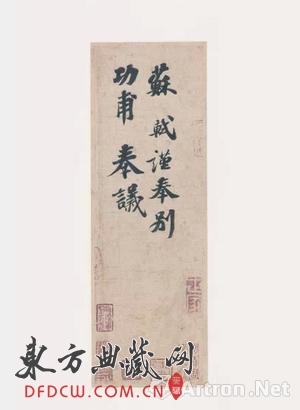 蘇軾謹奉別
功甫奉議
東方典藏网
DFDCW.COM
Artron.Net